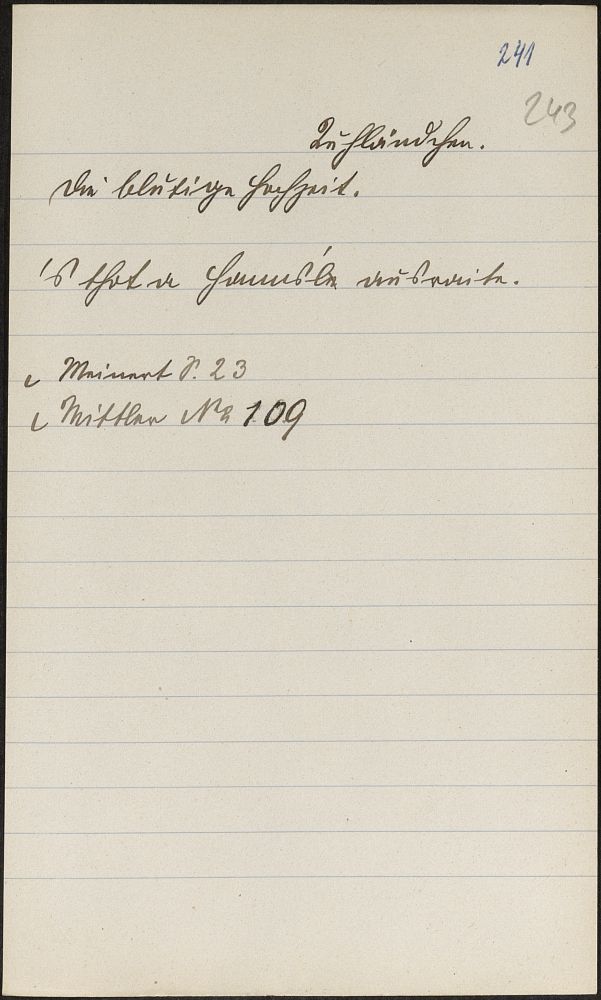 241
243
Kuhländchen.
Die blutige Hochzeit.
's thot a Hannsle ausraite.
Meinert S. 23
Mittler No 109